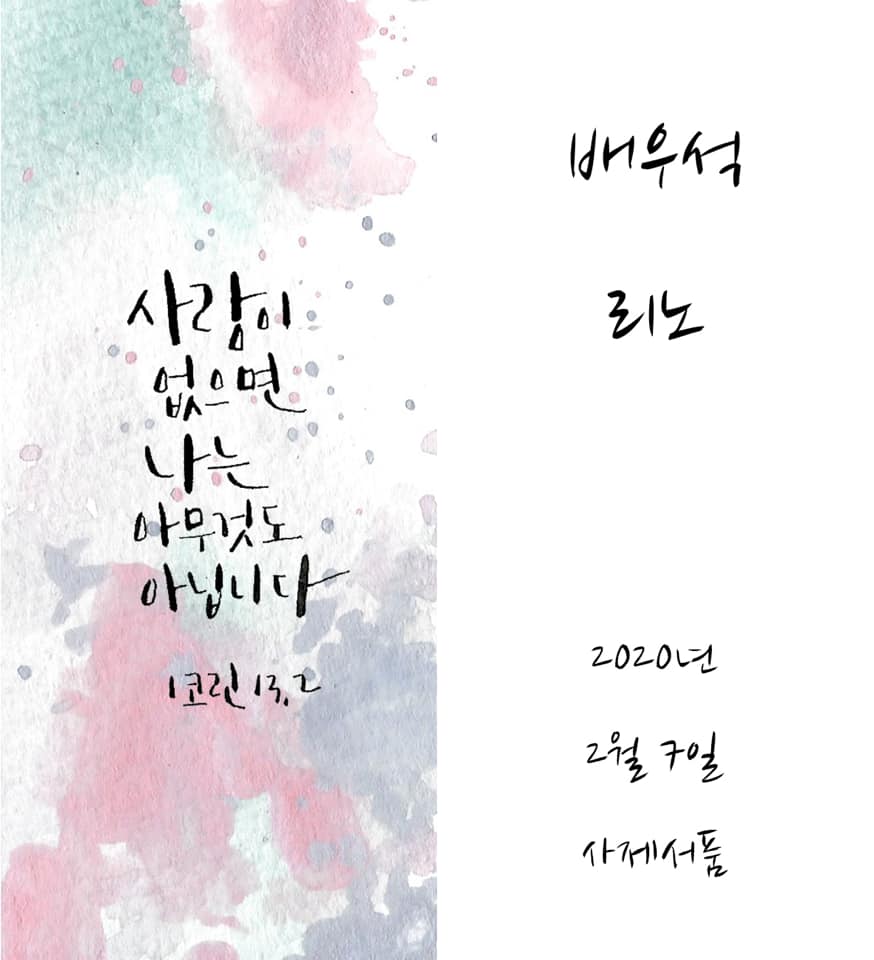 사랑이
없으면
나는
아무것도
아닙니다
1코린 13,2
배우석
리노
2020년
2월 7일
사제서품